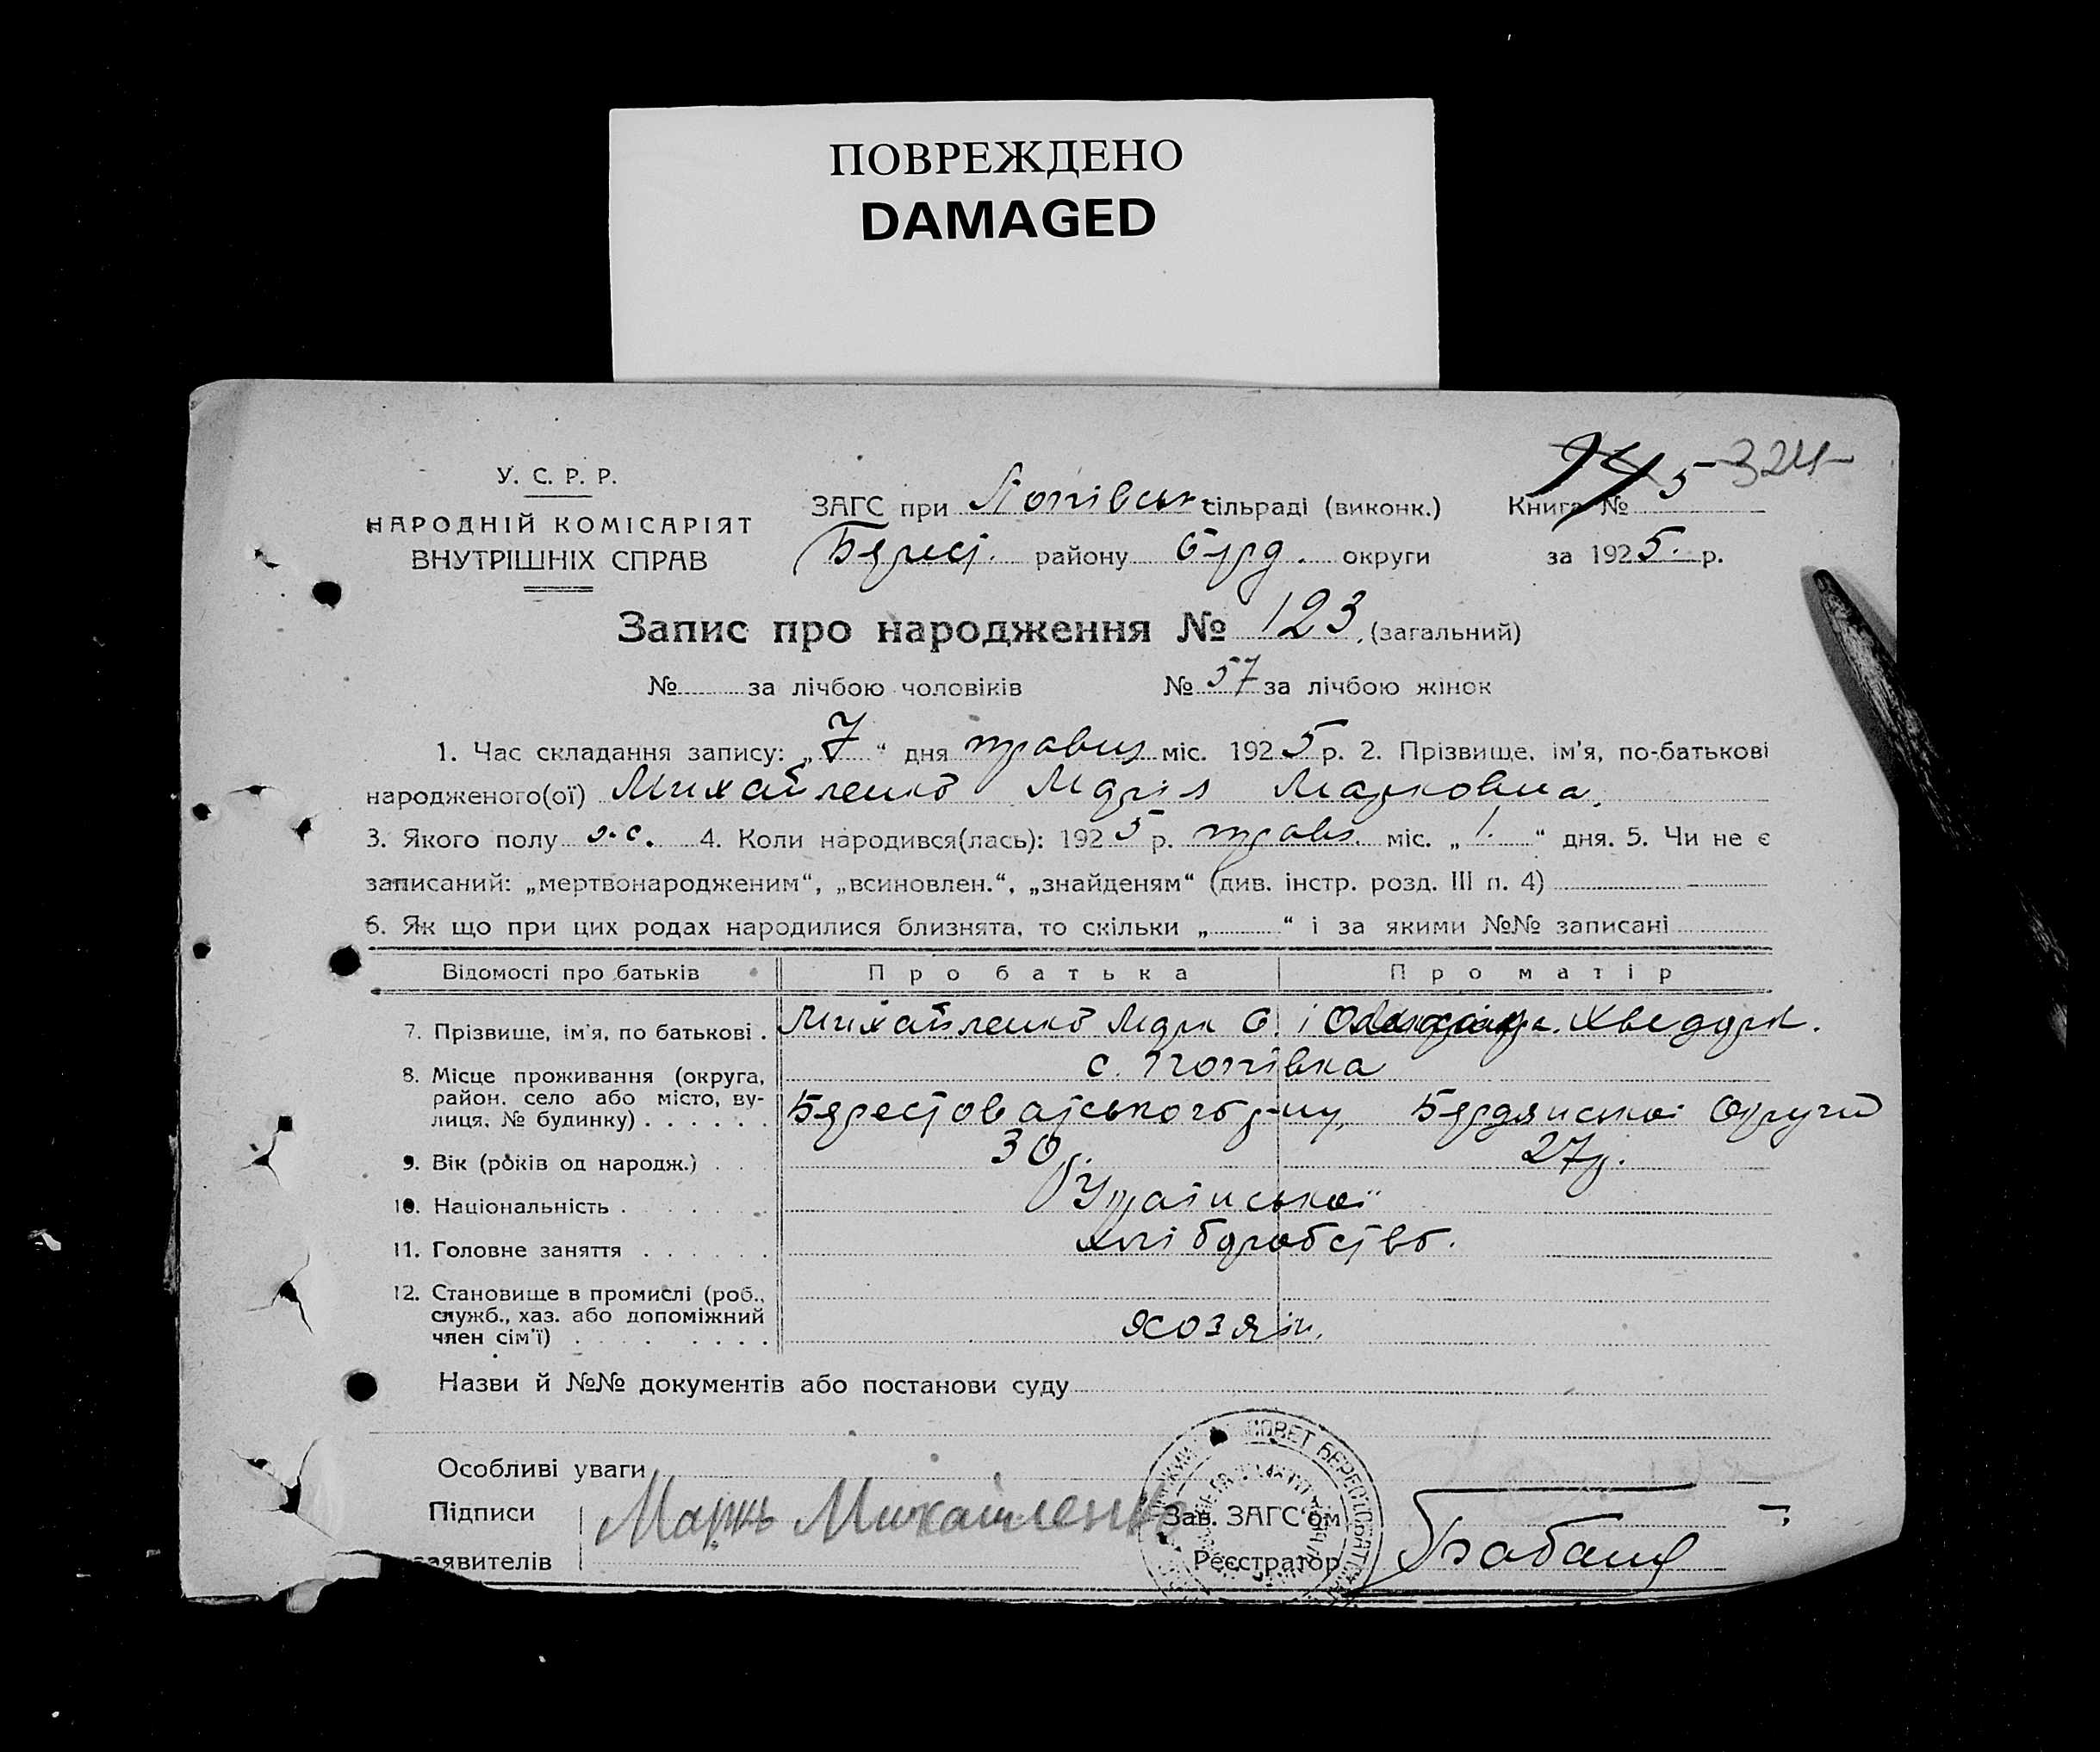 ПОВРЕЖДЕНО
DAMAGED
У. С. Р. Р.
НАРОДНІЙ КОМІСАРІЯТ
ВНУТРІШНІХ СПРАВ
ЗАГС при Попівськ. сільраді (виконк.)
Берест. району Берд. округи
Книга № 5 324
за 1925. р.
Запис про народження № 123. (загальний)
№ за лічбою чоловіків № 57 за лічбою жінок
1. Час складання запису: „7“ дня травня міс. 1925 р. 2. Прізвище, ім'я, по-батькові
народженого(ої) Михайленко Марія Марковна.
3. Якого полу ж. 4. Коли народився(лась): 1925 р. травн. міс. „1.“ дня. 5. Чи не є
записаний: „мертвонародженим“, „всиновлен.“, „знайденям“ (див. інстр. розд. III п. 4)
6. Як що при цих родах народилися близнята, то скільки „ “ і за якими №№ записані
Відомості про батьків Про батька Про матір
7. Прізвище, ім'я, по батькові . Михайленко Марк С. і Хведорк.
8. Місце проживання (округа, район, село або місто, вулиця, № будинку) . . . . . . с. Попівка
Берестоватського р-ну, Бердянської округи
9. Вік (років од народж.) . . . 30 р. 27 р.
10. Національність . . . . . . . Української
11. Головне заняття . . . . . . хліборобство.
12. Становище в промислі (роб., служб., хаз. або допоміжний член сім'ї) . . . . . . хозяїн.
Назви й №№ документів або постанови суду
Особливі уваги
Підписи Марко Михайленко Зав. ЗАГС'ом
заявителів Реєстратор
СОВЕТ БЕРЕСТОВАТСК